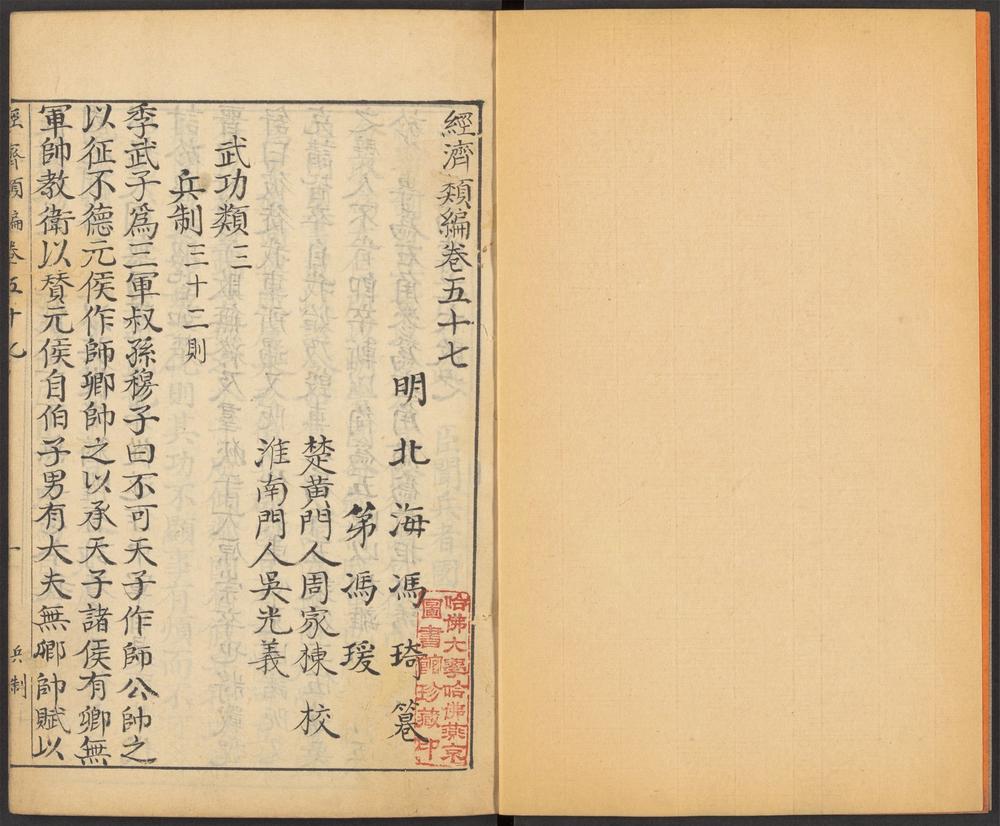 經濟類編卷五十七
明北海馮琦纂
弟馮瑗
楚黄門人周家棟校
淮南門人吳光義
武功類三
兵制三十二則
季武子爲三軍叔孫穆子曰不可天子作師公帥之
以征不德元侯作師卿帥之以承天子諸侯有卿無
軍帥教衛以賛元侯自伯子男有大夫無卿帥賦以
經濟類編卷五十七
一
兵制
哈佛大學哈佛燕京
圖書館珍藏印